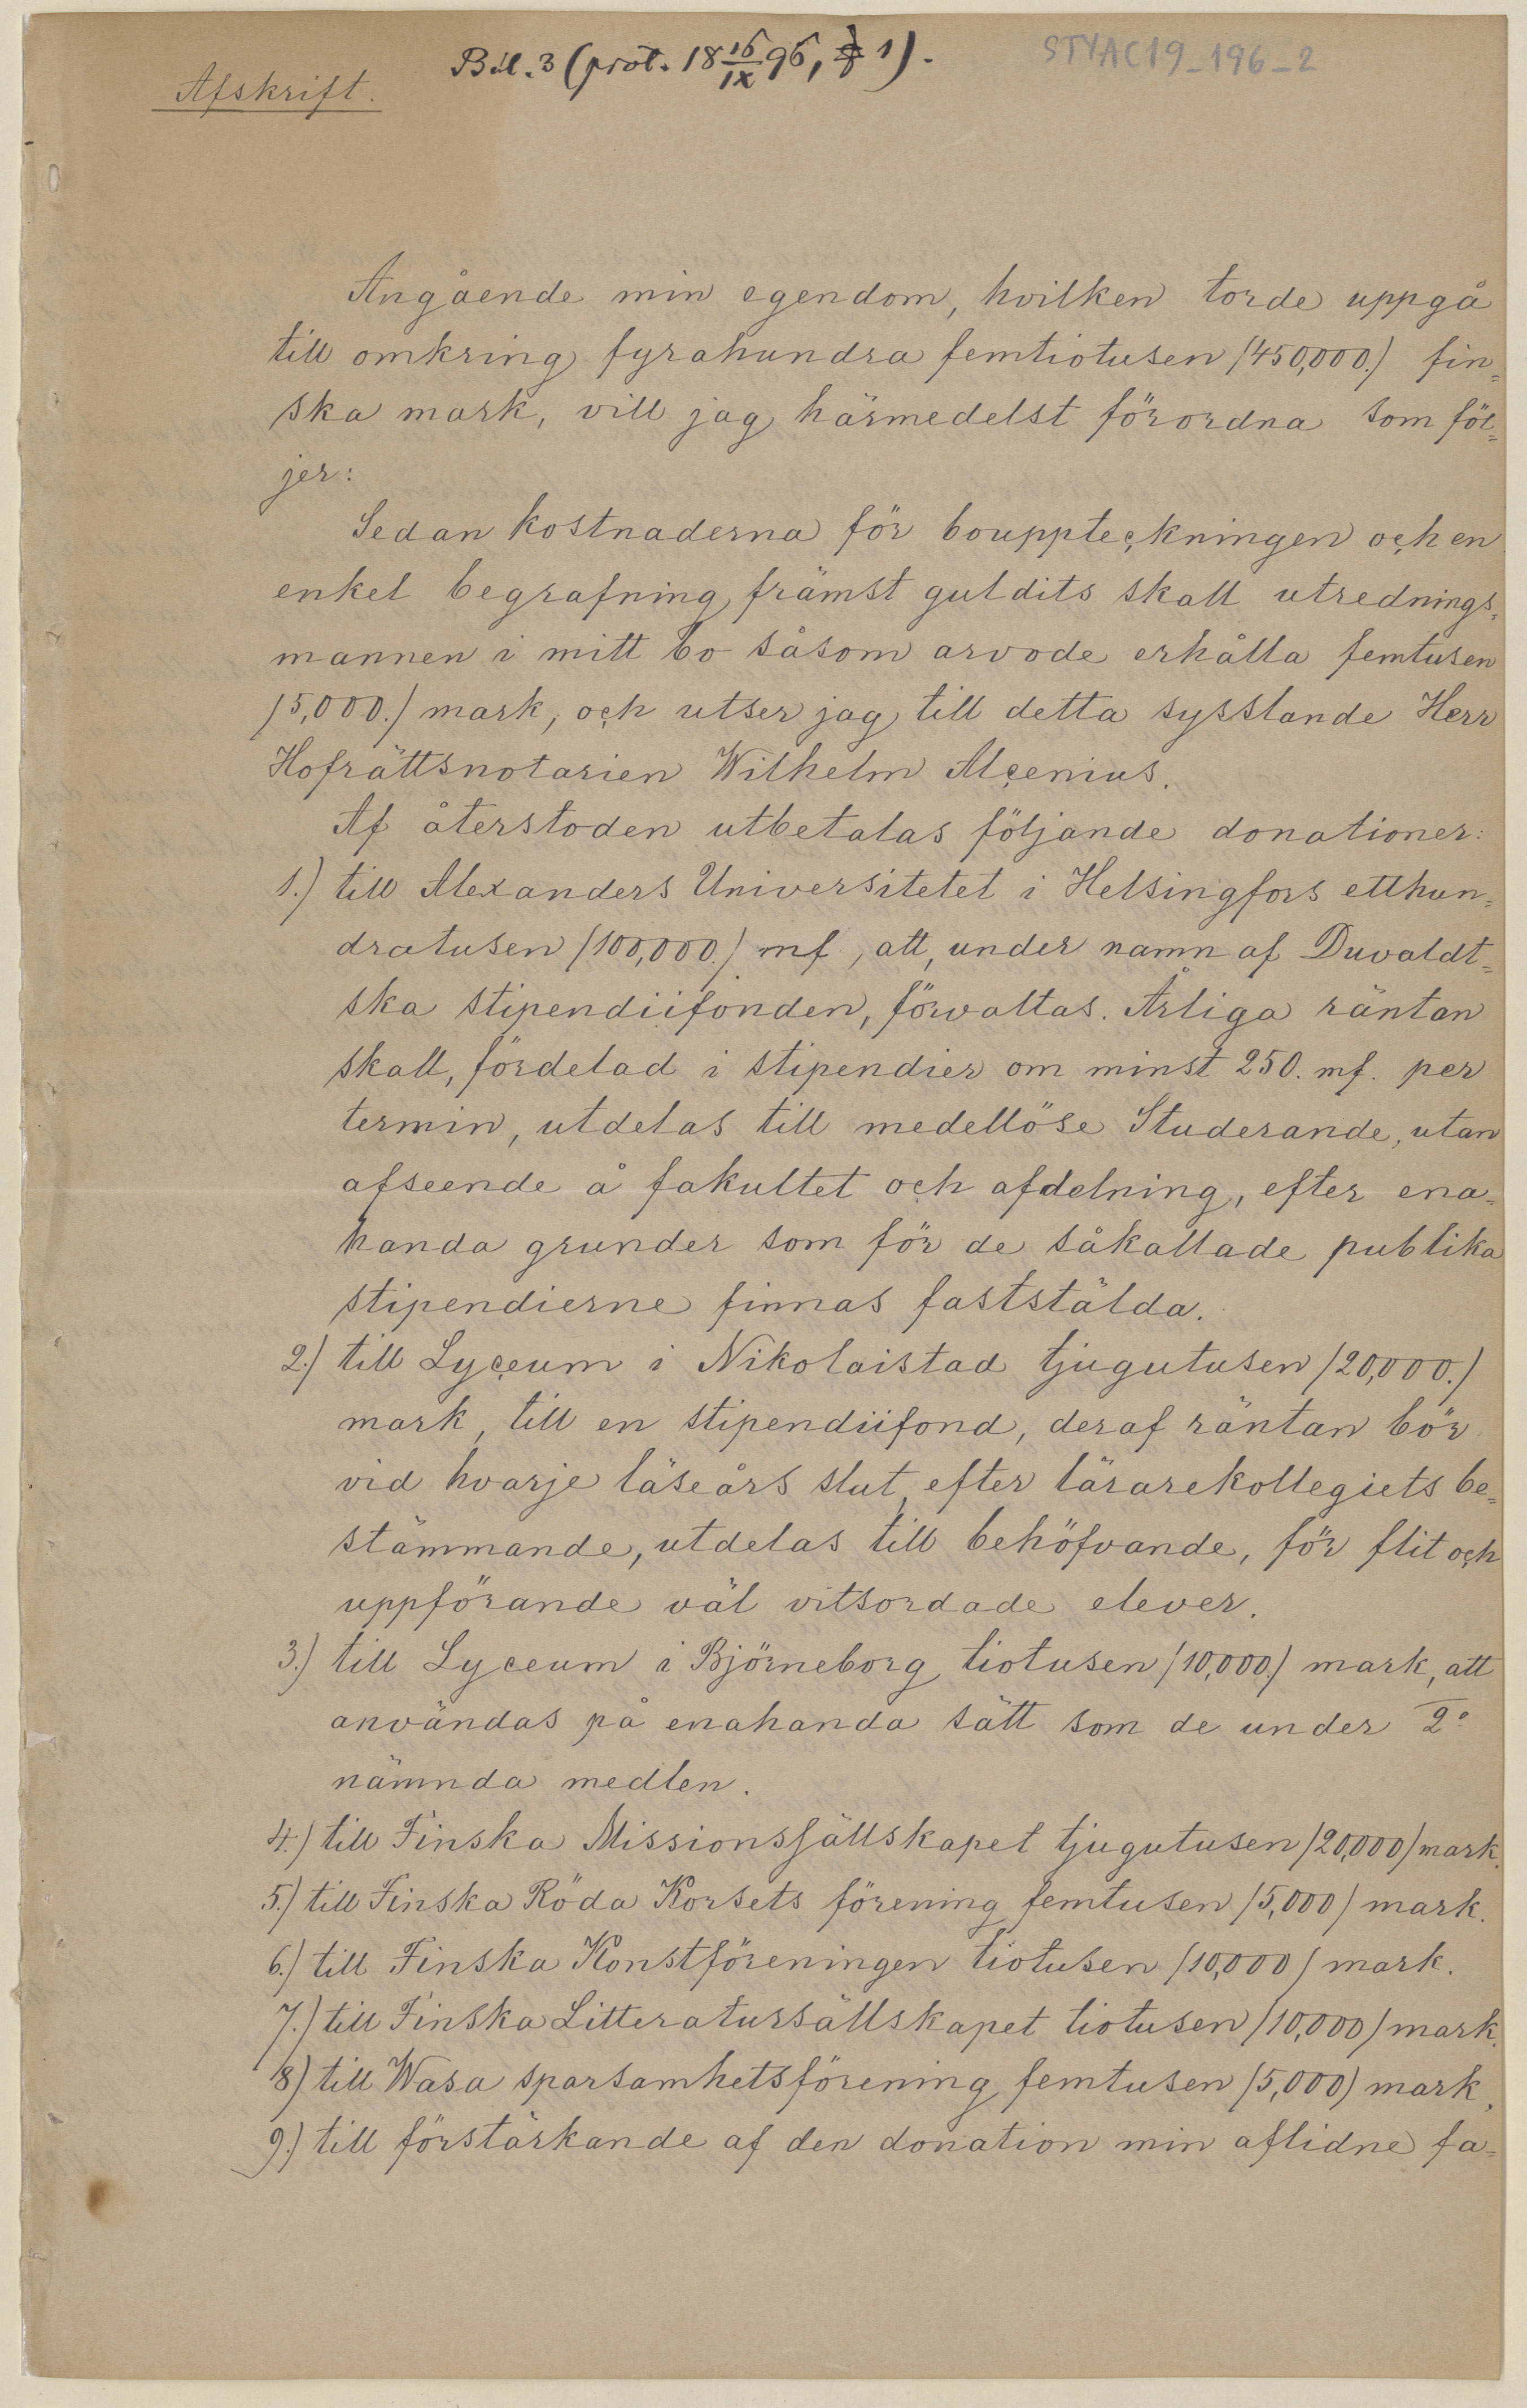 Bil. 3 (prot. 18 16/IX 96, § 1).
STYAC19_196_2
Afskrift.
Angående min egendom, hvilken torde uppgå
till omkring fyrahundra femtiotusen /450,000./ fin=
ska mark, vill jag härmedelst förordna som föl=
jer:
Sedan kostnaderna för bouppteckningen och en
enkel begrafning främst guldits skall utrednings=
mannen i mitt bo såsom arvode erhålla femtusen
/5,000./ mark, och utser jag till detta sysslande Herr
Hofrättsnotarien Wilhelm Alcenius.
Af återstoden utbetalas följande donationer:
1.) till Alexanders Universitetet i Helsingfors etthun=
dratusen /100,000./ mf, att, under namn af Duvaldt=
ska stipendiifonden, förvaltas. Årliga räntan
skall, fördelad i stipendier om minst 250. mf. per
termin, utdelas till medellöse Studerande, utan
afseende å fakultet och afdelning, efter ena=
handa grunder som för de såkallade publika
stipendierne finnas fastställda.
2.) till Lyceum i Nikolaistad tjugutusen /20,000./
mark, till en stipendiifond, deraf räntan bör
vid hvarje läseårs slut, efter lärarekollegiets be=
stämmande, utdelas till behöfvande, för flit och
uppförande väl vitsordade elever.
3.) till Lyceum i Björneborg tiotusen /10,000./ mark, att
användas på enahanda sätt som de under 2º
nämnda medlen.
4.) till Finska Missionssällskapet tjugutusen /20,000/ mark.
5.) till Finska Röda Korsets förening femtusen /5,000/ mark.
6.) till Finska Konstföreningen tiotusen /10,000/ mark.
7.) till Finska Litteratursällskapet tiotusen /10,000/ mark.
8) till Wasa sparsamhetsförening femtusen /5,000) mark,
9.) till förstärkande af den donation min aflidne fa=